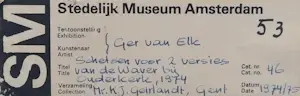 SM
Stedelijk Museum Amsterdam
Tentoonstelling
Exhibition
53
Kunstenaar
Artist
Ger van Elk
Titel
Title
Schetsen voor 2 versies
van de Waver bij
Ouderkerk, 1974
Cat. nr.
Cat. no. 46
Verzameling
Collection
Mr. K.J. Geirlandt, Gent
Datum
Date 1974/75